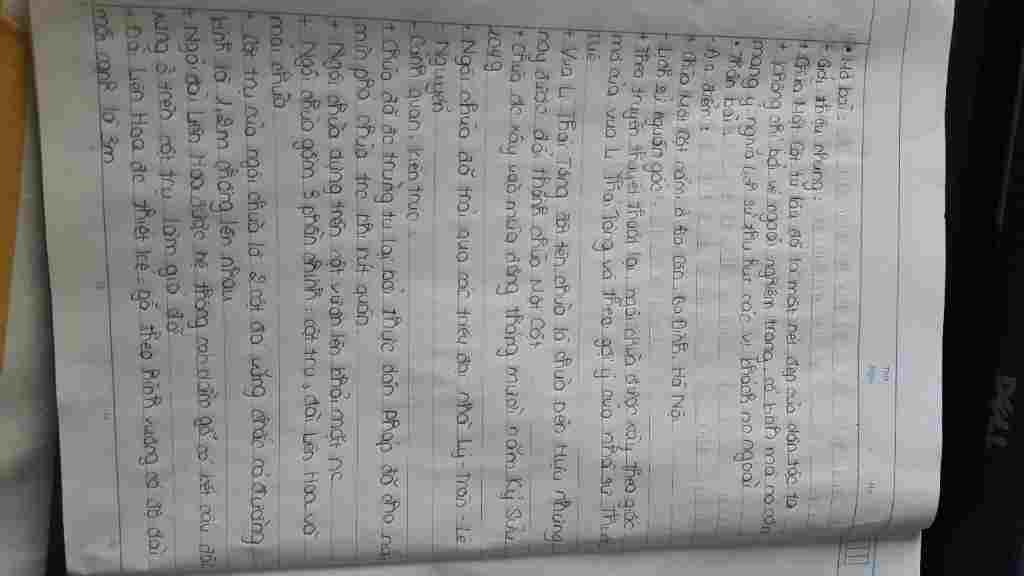 • Mở bài:
+ Giới thiệu chung:
+ Chùa Một Cột từ lâu đã là một nét đẹp của dân tộc ta
+ Không chỉ bởi vì ngoài nghiêm trang, cổ kính mà nó còn
mang ý nghĩa lịch sử thu hút các vị khách nước ngoài
• Thân bài:
- Địa điểm:
+ Chùa Một Cột nằm ở Ba Đình, Hà Nội
- Lịch sử nguồn gốc:
+ Theo truyền thuyết thuật lại ngôi chùa được xây theo giấc
mơ của vua Lý Thái Tông và theo gợi ý của nhà sư Thiền
Tuệ
+ Vua Lý Thái Tông đặt tên chùa là chùa Diên Hựu nhưng
nay được đổi thành chùa Một Cột
+ Chùa được xây vào mùa đông tháng mười năm Kỷ Sửu
1049
+ Ngôi chùa đã trải qua các triều đại nhà Lý - Trần - Lê
- Nguyễn
- Cảnh quan, kiến trúc:
+ Chùa đã được trùng tu lại bởi thực dân pháp đã cho nổ
mìn phá chùa trước khi rút quân
+ Ngôi chùa dựng trên cột vươn lên khỏi mặt nước
+ Ngôi chùa gồm 3 phần chính: cột trụ, đài Liên Hoa và
mái chùa
+ Cột trụ của ngôi chùa là 2 cột đá vững chắc có đường
kính là 1,2m chồng lên nhau
+ Ngôi đài Liên Hoa được hệ thống gỗ có kết cấu
ở trên cột trụ làm giá đỡ
+ Đài Liên Hoa được thiết kế gỗ theo hình vuông có độ dài
mỗi cạnh là 3m
DELL